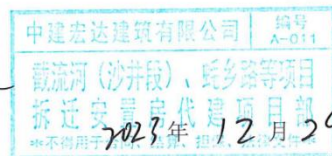 中建宏达建筑有限公司 编号
A-011
截流河（沙井段）、蚝乡路等项目
拆迁安置房代建项目部
※不得用于
2023年 12月 2